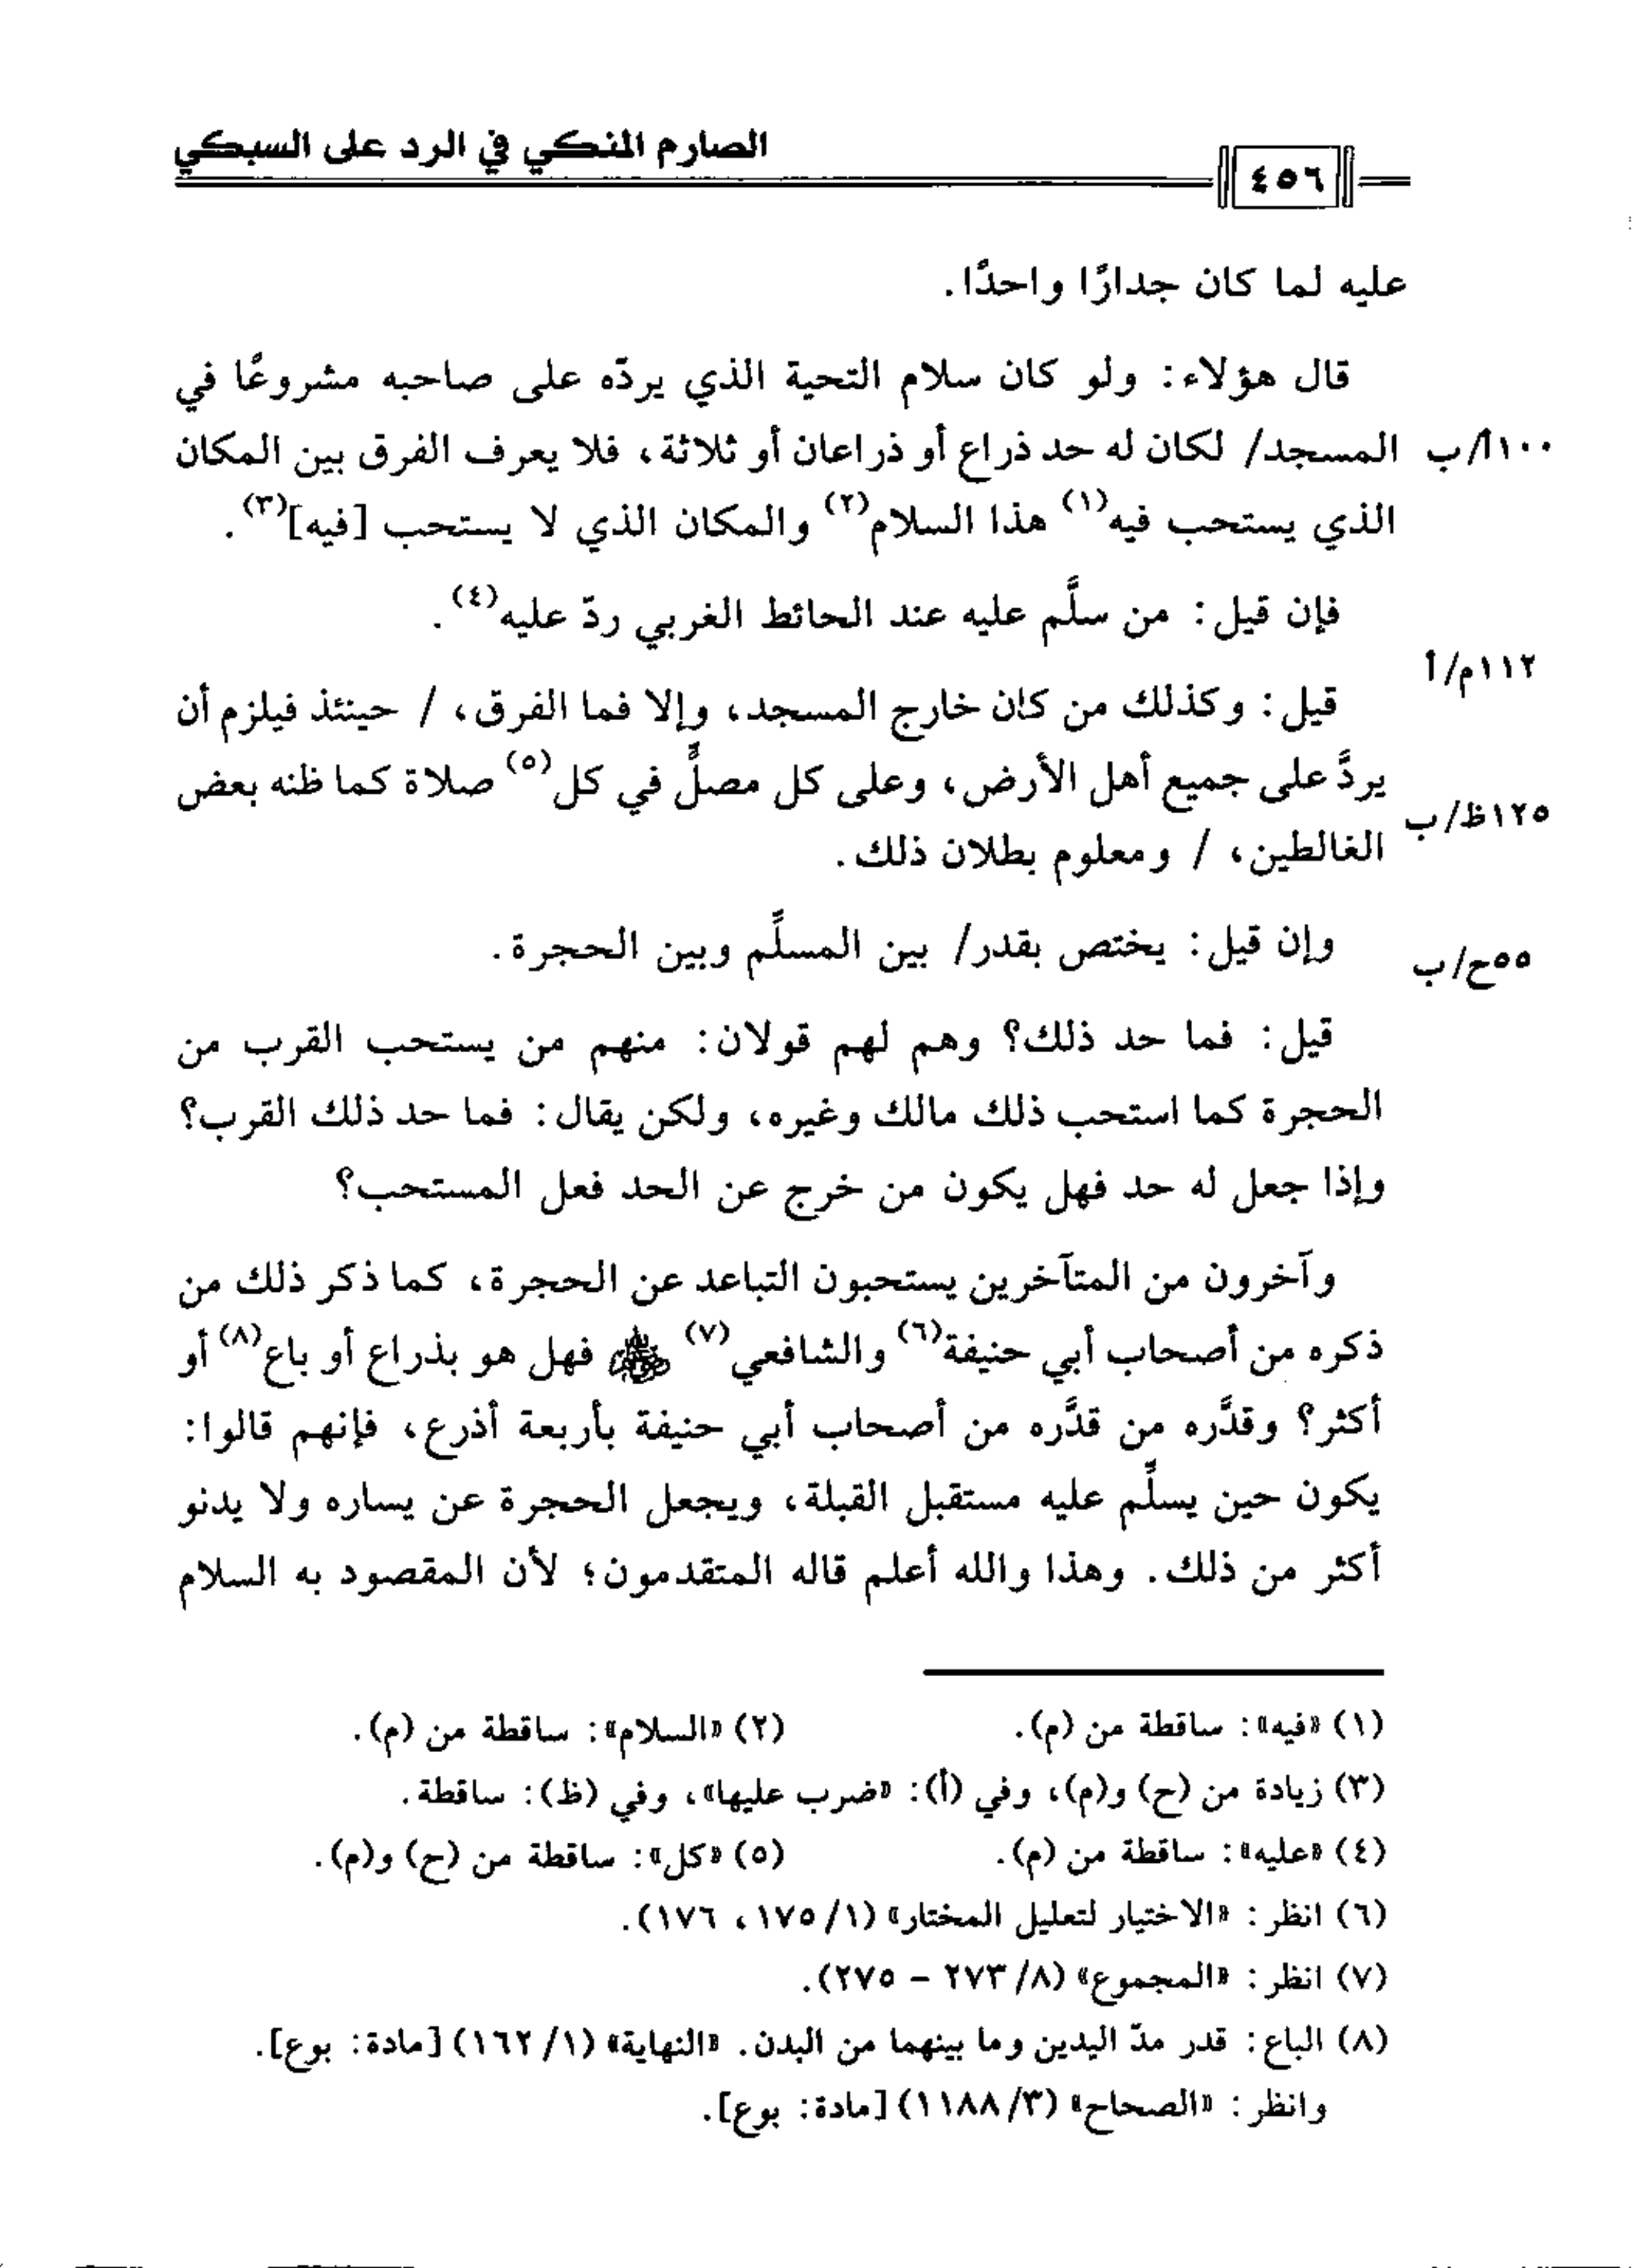 الصارم المنكي في الرد على السبكي
٤٥٦
عليه لما كان جدارًا واحدًا.
قال هؤلاء: ولو كان سلام التحية الذي يردّه على صاحبه مشروعًا في
١٠٠أ/ب المسجد/ لكان له حد ذراع أو ذراعان أو ثلاثة، فلا يعرف الفرق بين المكان
الذي يستحب فيه(١) هذا السلام(٢) والمكان الذي لا يستحب [فيه](٣).
فإن قيل: من سلَّم عليه عند الحائط الغربي ردّ عليه(٤).
١١٢م/أ
قيل: وكذلك من كان خارج المسجد، وإلا فما الفرق، / حينئذ فيلزم أن
يردَّ على جميع أهل الأرض، وعلى كل مصلٍّ في كل(٥) صلاة كما ظنه بعض
١٢٥ظ/ب
الغالطين، / ومعلوم بطلان ذلك.
وإن قيل: يختص بقدر/ بين المسلِّم وبين الحجرة.
٥٥ح/ب
قيل: فما حد ذلك؟ وهم لهم قولان: منهم من يستحب القرب من
الحجرة كما استحب ذلك مالك وغيره، ولكن يقال: فما حد ذلك القرب؟
وإذا جعل له حد فهل يكون من خرج عن الحد فعل المستحب؟
وآخرون من المتآخرين يستحبون التباعد عن الحجرة، كما ذكر ذلك من
ذكره من أصحاب أبي حنيفة(٦) والشافعي(٧) فهل هو بذراع أو باع(٨) أو
أكثر؟ وقدَّره من قدَّره من أصحاب أبي حنيفة بأربعة أذرع، فإنهم قالوا:
يكون حين يسلِّم عليه مستقبل القبلة، ويجعل الحجرة عن يساره ولا يدنو
أكثر من ذلك. وهذا والله أعلم قاله المتقدمون؛ لأن المقصود به السلام
(١) «فيه»: ساقطة من (م). (٢) «السلام»: ساقطة من (م).
(٣) زيادة من (ح) و(م)، وفي (أ): «ضرب عليها»، وفي (ظ): ساقطة.
(٤) «عليه»: ساقطة من (م). (٥) «كل»: ساقطة من (ح) و(م).
(٦) انظر: «الاختيار لتعليل المختار» (١/ ١٧٥، ١٧٦).
(٧) انظر: «المجموع» (٨/ ٢٧٣ - ٢٧٥).
(٨) الباع: قدر مدّ اليدين وما بينهما من البدن. «النهاية» (١/ ١٦٢) [مادة: بوع].
وانظر: «الصحاح» (٣/ ١١٨٨) [مادة: بوع].